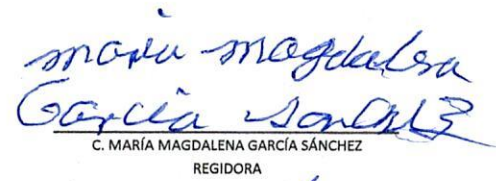 maria magdalena
Garcia Sanchez
C. MARÍA MAGDALENA GARCÍA SÁNCHEZ
REGIDORA